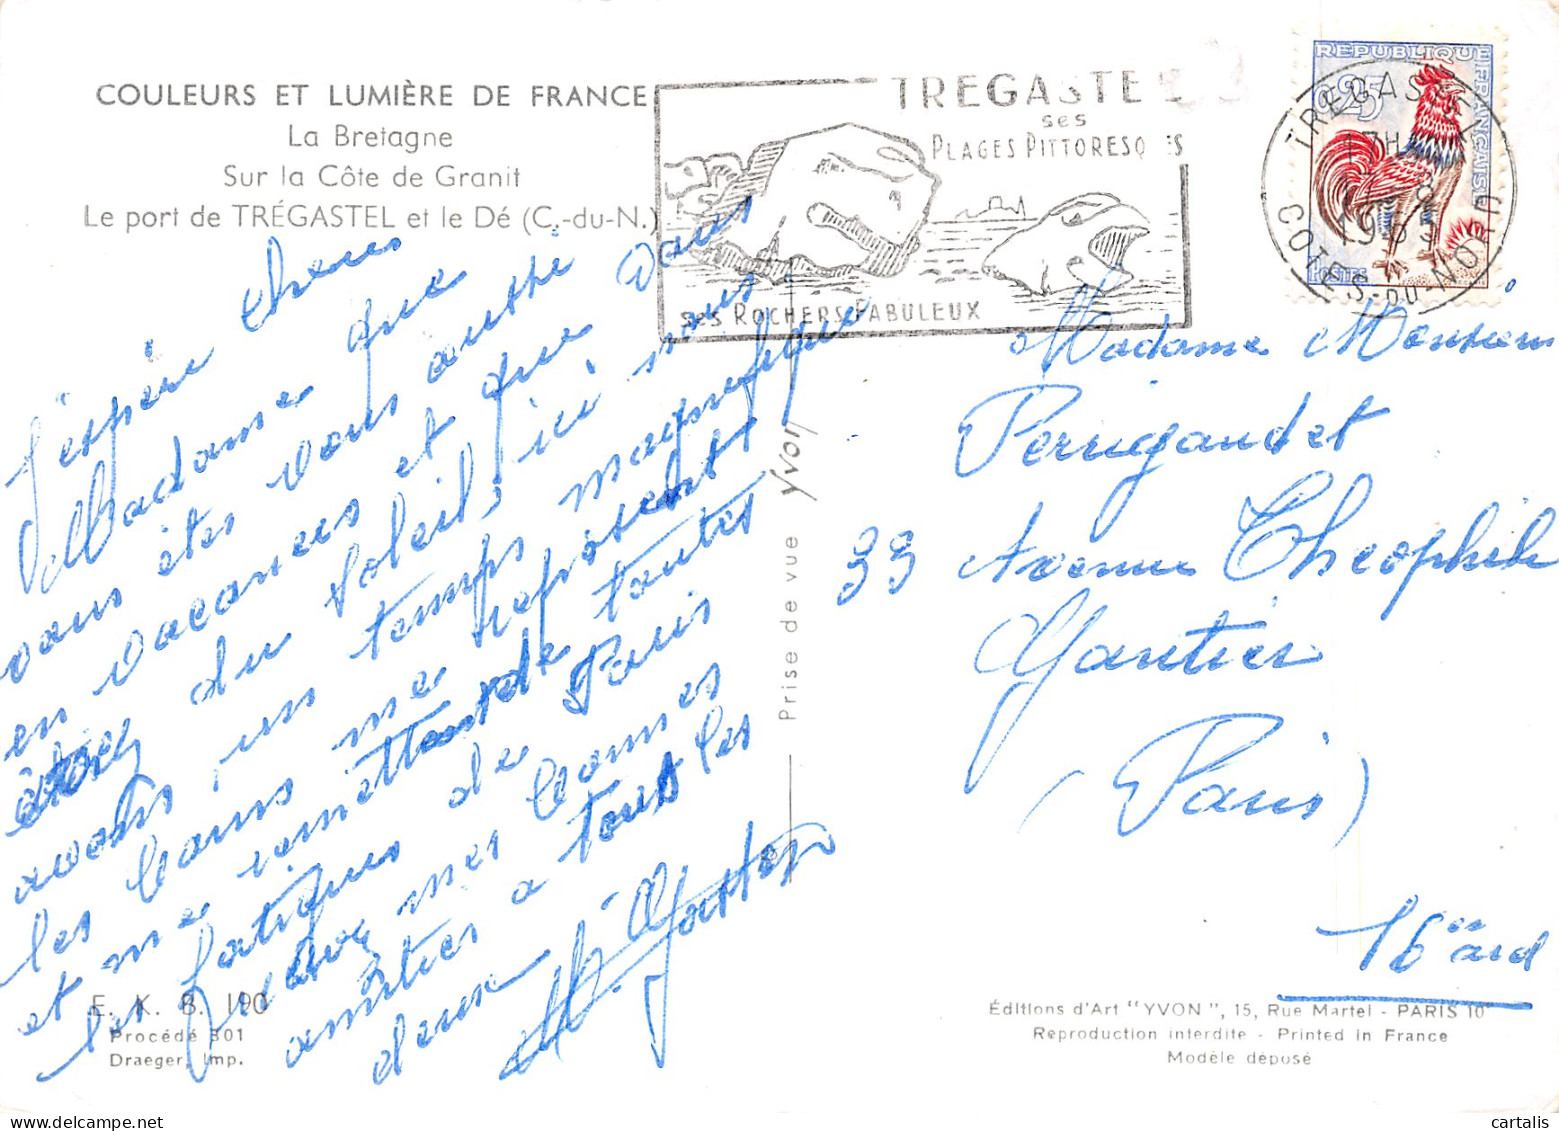 COULEURS ET LUMIÈRE DE FRANCE
La Bretagne
Sur la Côte de Granit
Le port de TRÉGASTEL et le Dé (C.-du-N.)
TREGASTE
ses
PLAGES PITTORESQ ES
ses ROCHERS FABULEUX
REPUBLIQUE FRANÇAISE
0,25
POSTES
TREGASTEL
17H
1963
COTES-DU-NORD
Chère
Madame
J'espère que
vous êtes tous
en vacances et que vous
du soleil, ici nous
avons un temps magnifique
les bains me reposent
et me remettent de toutes
les fatigues de Paris
mes bonnes
amitiés à tous les
deux
Madame Monsieur
Perrigaudet
33 Avenue Théophile
Gautier
(Paris)
16è ard
Prise de vue Yvon
E. K. B. 190
Procédé 301
Draeger, Imp.
Éditions d'Art "YVON", 15, Rue Martel - PARIS 10e
Reproduction interdite - Printed in France
Modèle déposé
cartalis